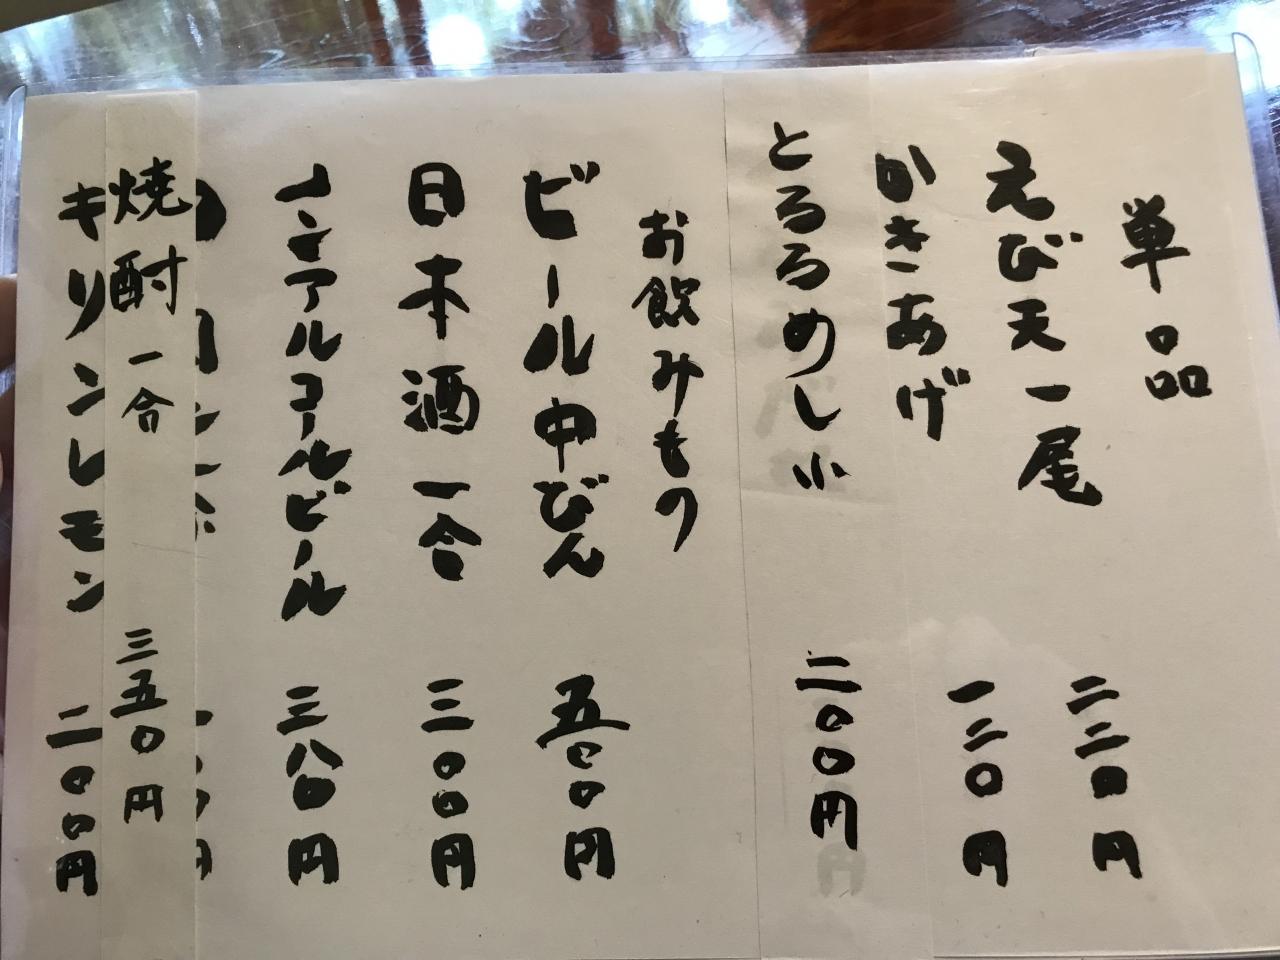 単品
えび天一尾 二三〇円
かきあげ 一二〇円
とろろめし小 二〇〇円
お飲みもの
ビール中びん 五〇〇円
日本酒一合 三〇〇円
ノンアルコールビール 三八〇円
焼酎一合 三五〇円
キリンレモン 二〇〇円